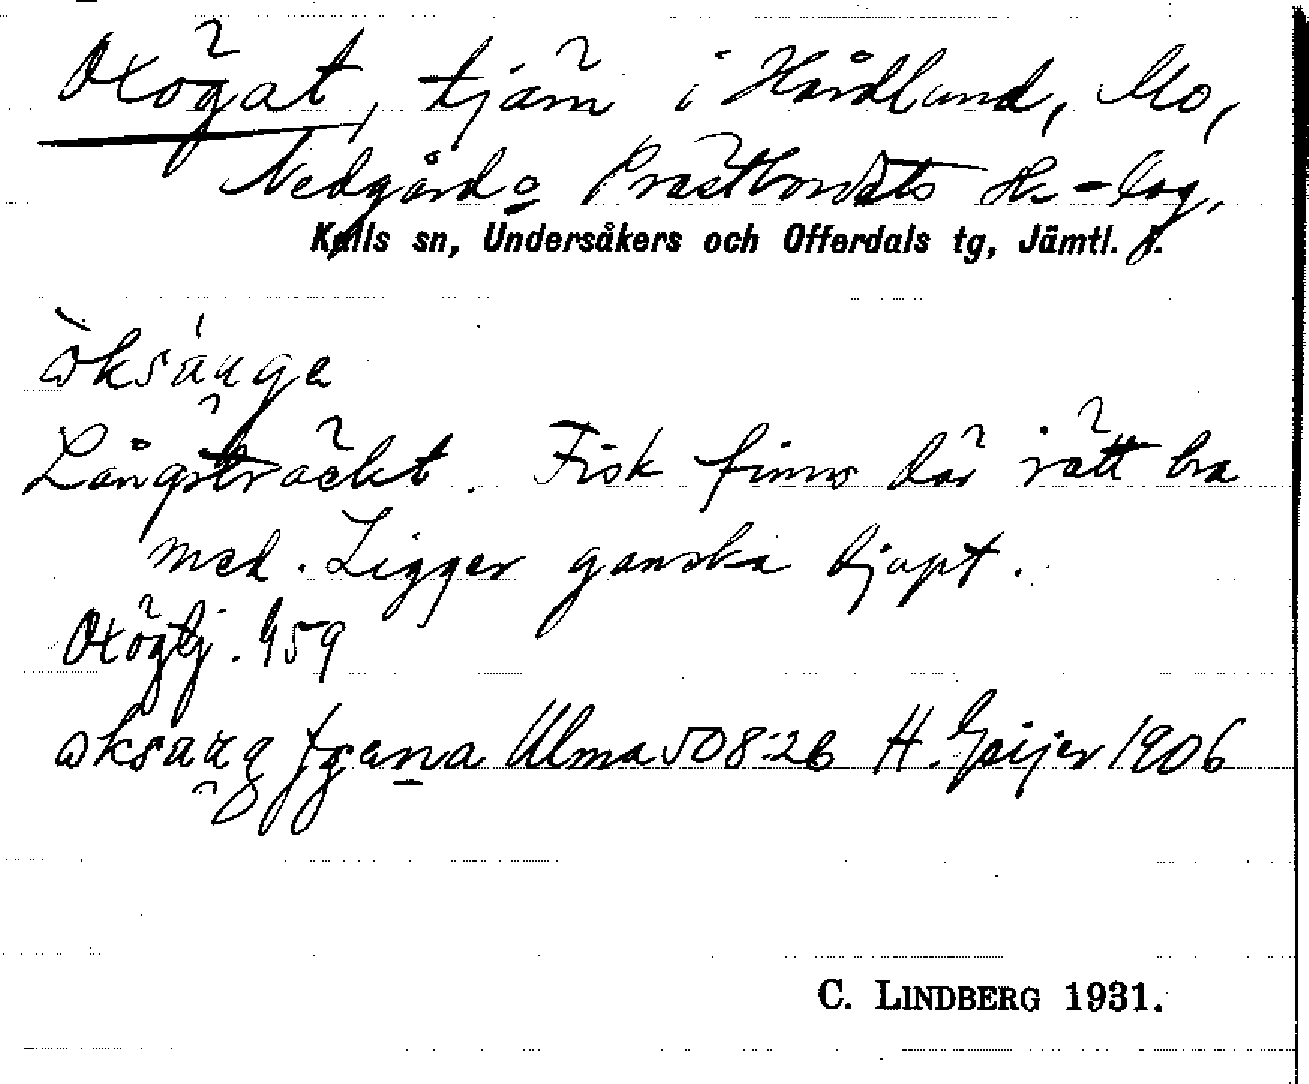 Oxögat, tjärn i Hårdlund, Mo,
Nedgård o Prästbordets Hs-lag,
Kalls sn, Undersåkers och Offerdals tg, Jämtl. l.
Långsträckt. Fisk finns där rätt bra
med. Ligger ganska djupt.
Oxögtj. 459
Ulma 508:26 H. Geijer 1906
C. LINDBERG 1931.